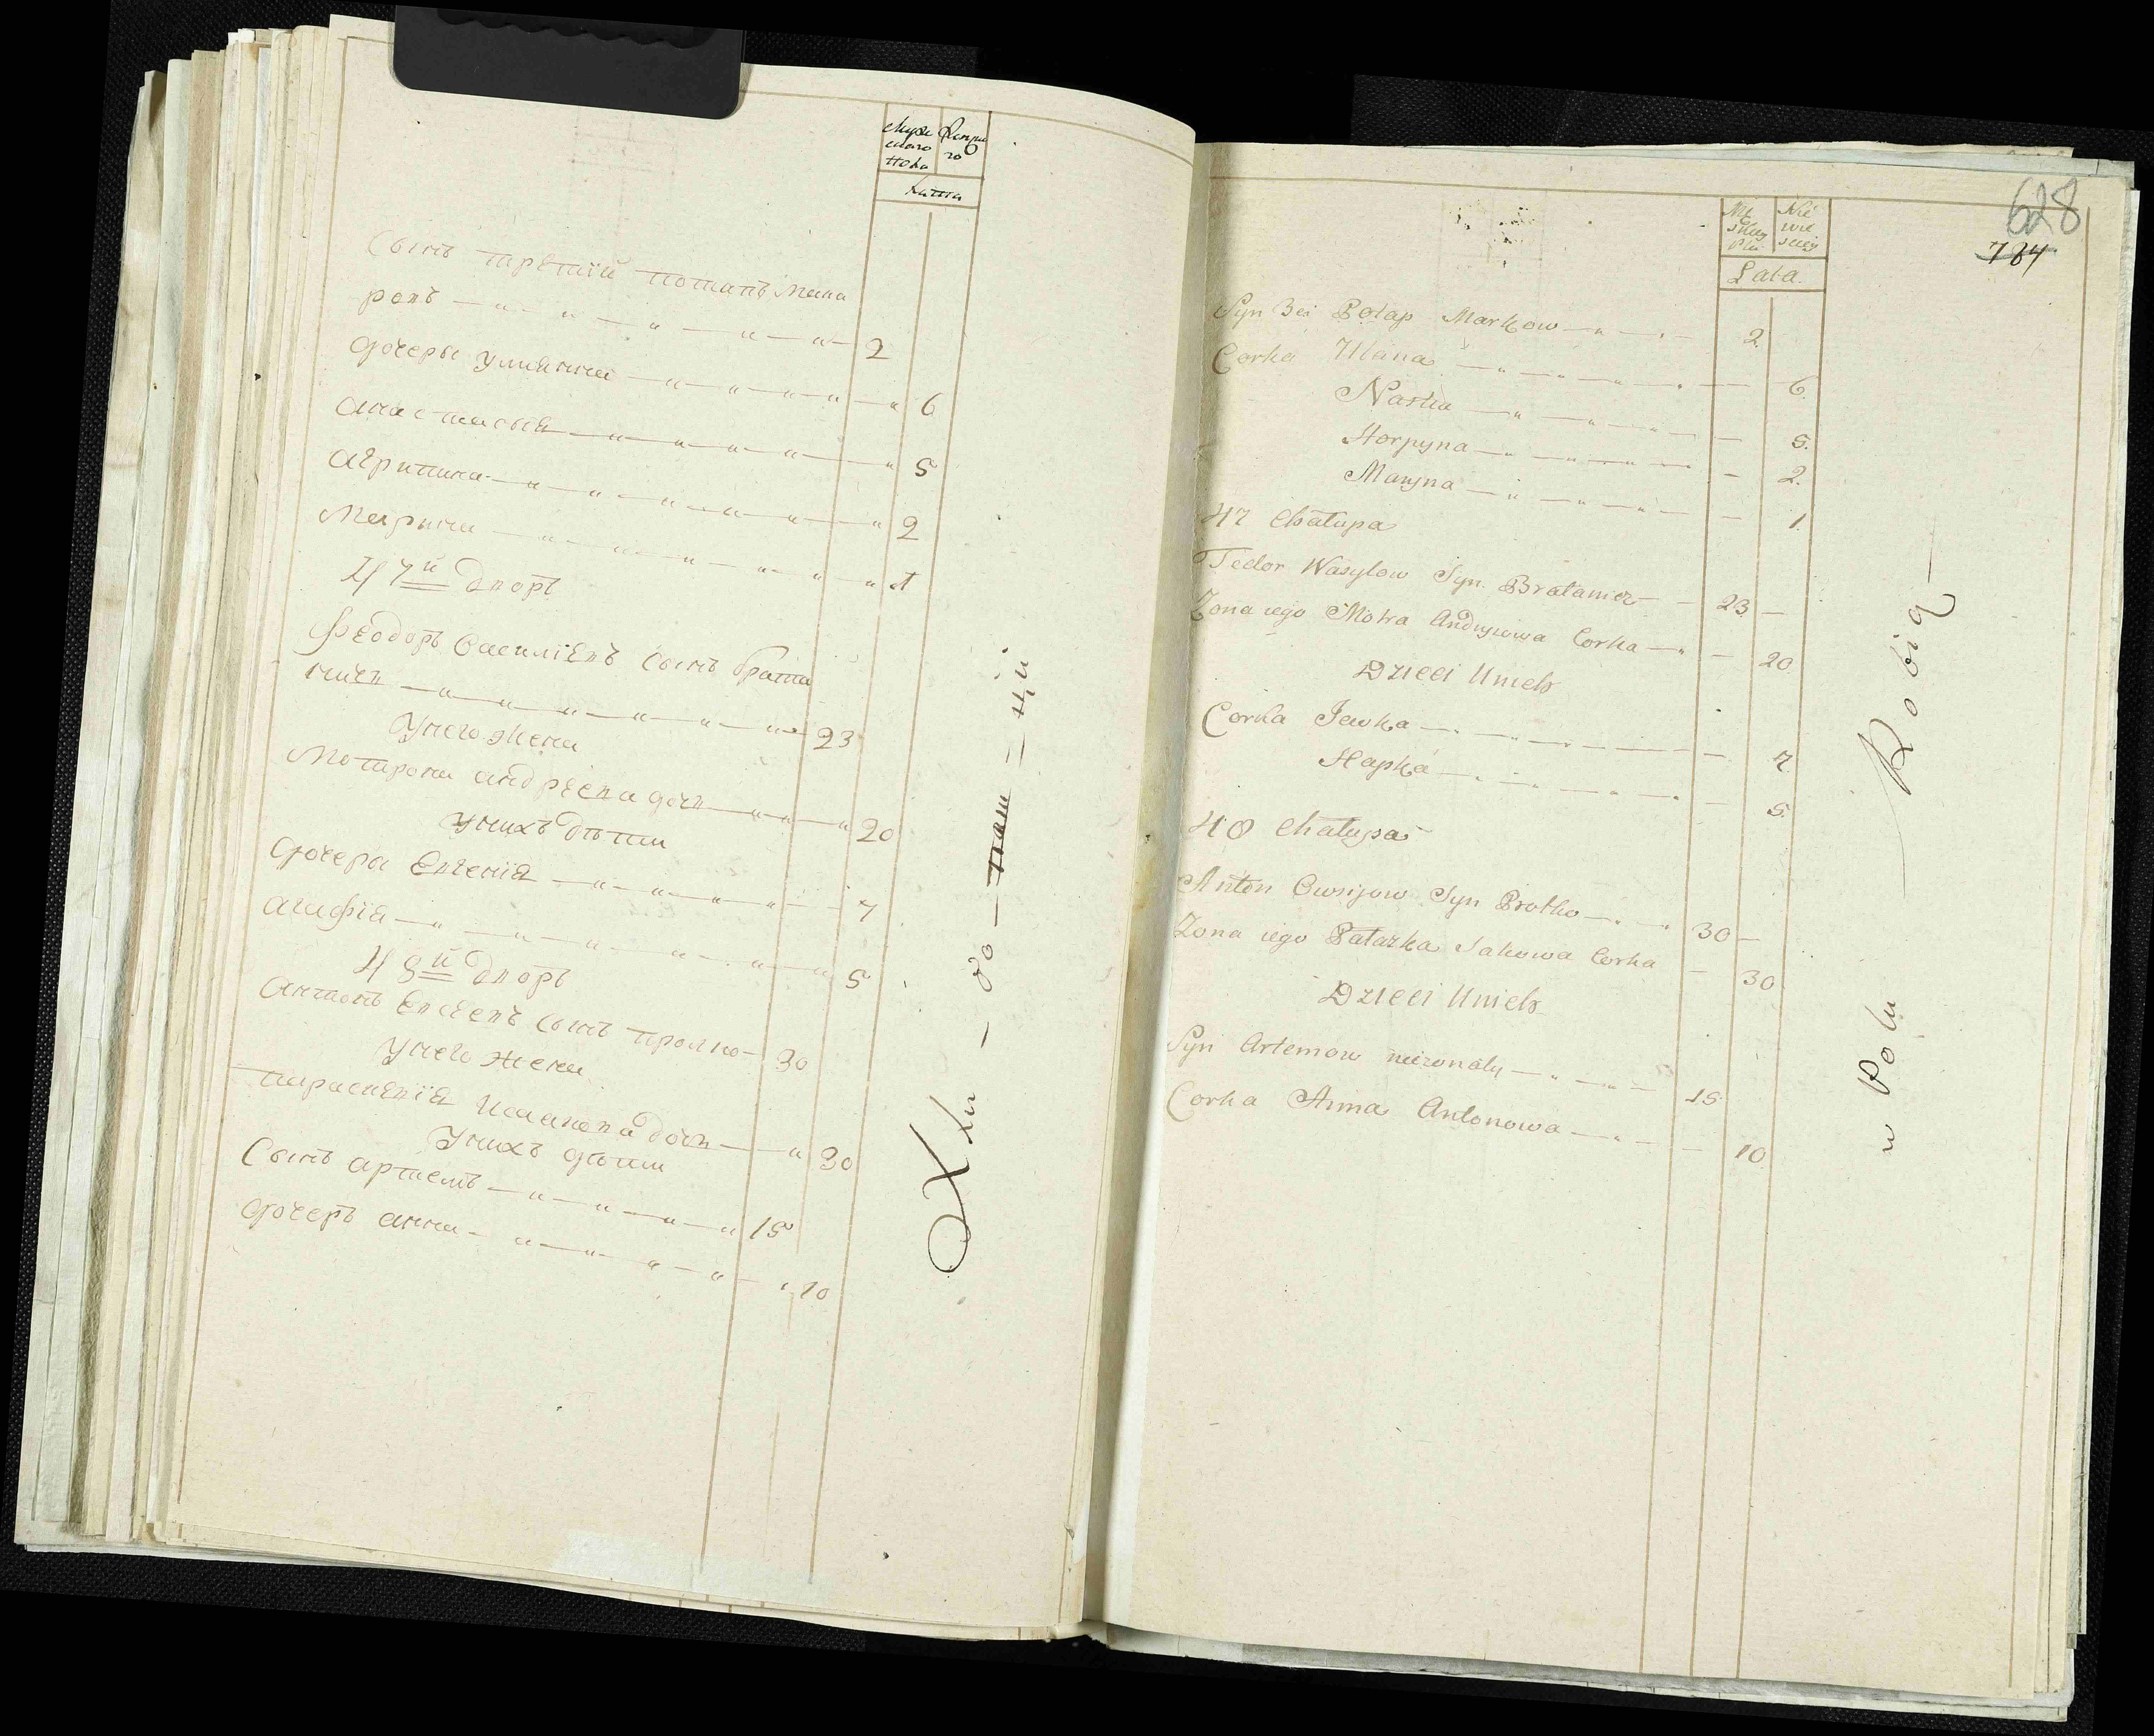 Муже
скаго
пола
Женска
го
Лѣта
Сынъ третїй потапъ Марко
ровъ 2
дочеры Улиянна 6
анастасыя 5
агрипина 2
Марина 1
47й дворъ
Феодоръ Василіевъ сынъ брата
ничъ 23
У него жена
Мотрона андрѣева дочь 20
У нихъ дѣти
дочеры Евгенїя 7
агафїя 5
48й дворъ
антонъ Евсѣевъ сынъ 30
У него жена
параскевїя дочь 30
У нихъ дѣти
Сынъ артемъ 15
дочеръ анна 10
628
784
Nie
wie
sciey
Lata.
Syn 3ci Potap Markow 2
Corka Ulana 6.
Nastia 5.
Horpyna 2.
Maryna 1.
47 Chałupa
Fedor Wasylow Syn Bratanicz 23
Zona iego Motra Andryiowa Corka 20
Dzieci Unich
Corka Jewka 7
Hapka 5.
48 Chałupa
Anten Owsijow Syn 30
Zona iego Corka 30
Dzieci Unich
Syn Artemow 15
Corka Anna Antonowa 10
w Polu Robią